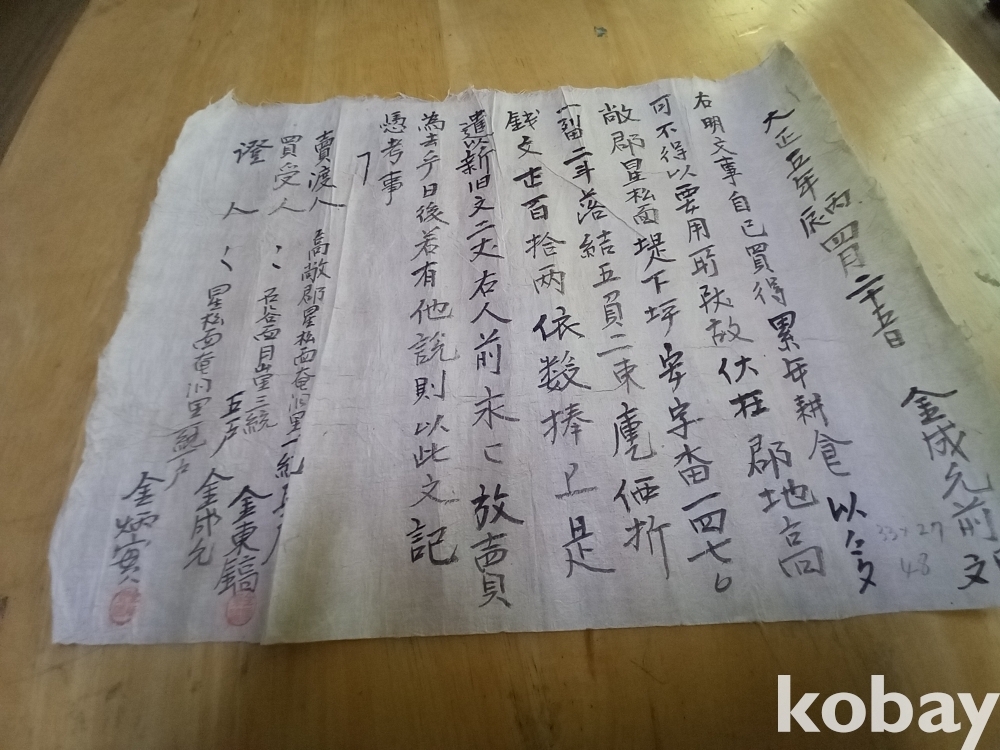 大正五年丙辰四月二十五日 金成允前 文
右明文事自己買得累年耕食以
可不得以要用所致故伏在郡地高
敞郡星松面堤下坪字畓一四七
二斗落結五負二束庫価折
錢文百拾両依数捧上是
遣以新旧文二丈右人前永〻放賣
為去乎日後若有他説則以此文記
憑考事
賣渡人 高敞郡星松面里一統 金東鎬
買受人 〻 石谷面月山里三統五戸 金成允
證人 〻 星松面里統戸 金炳賓
33×27
48
kobay